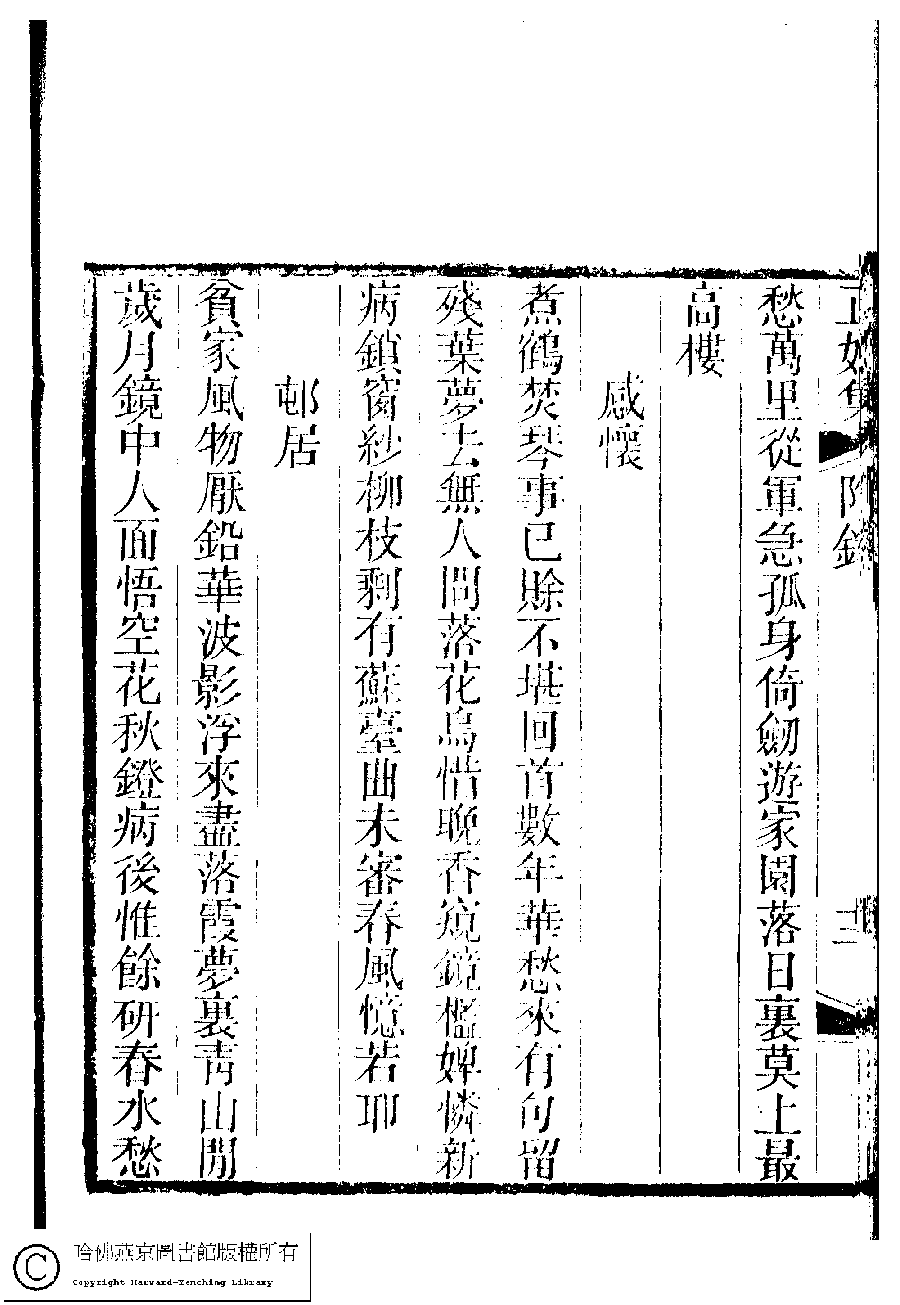 正始集 附錄
愁萬里從軍急孤身倚劒遊家園落日裏莫上最
高樓
感懷
煮鶴焚琴事已賖不堪回首數年華愁來有句留
殘葉夢去無人問落花烏惜晚香窺鏡檻婢憐新
病鎖窗紗柳枝剩有蘇臺曲未審春風憶若耶
邨居
貧家風物厭鉛華波影浮來盡落霞夢裏靑山閒
歲月鏡中人面悟空花秋鐙病後惟餘研春水愁
哈佛燕京圖書館版權所有
Copyright Harvard-Yenching Library